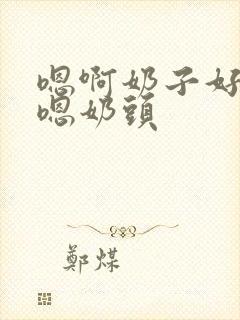 嗯啊奶子好
嗯奶頭
鄭煤